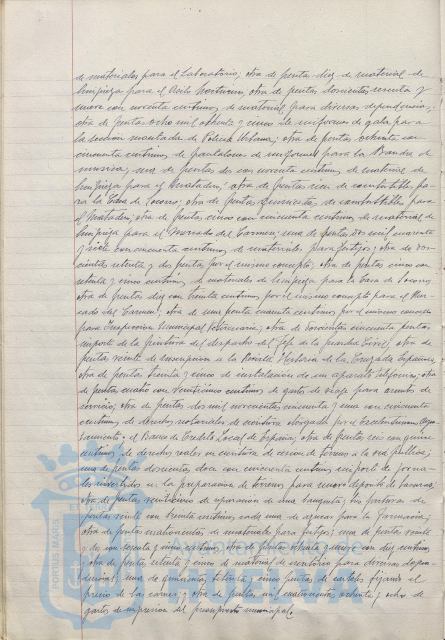 de materiales para el Laboratorio; otra de pesetas diez de material de
limpieza para el Asilo Nocturno; otra de pesetas doscientas sesenta y
nueve con noventa centimos de material para diversas dependencias;
otra de pesetas ocho mil ochenta y cinco de uniformes de gala para
la sección montada de Policia Urbana; otra de pesetas ochenta con
cincuenta centimos de pantalones de uniforme para la Banda de
musica; una de pesetas dos con noventa centimos de material de
limpieza para el Matadero; otra de pesetas de combustible pa-
ra la Casa de Socorro; otra de pesetas quinientas de combustible para
el Matadero; otra de pesetas cinco con cincuenta centimos de material de
limpieza para el Mercado del Carmen; una de pesetas dos mil cuarenta
y siete con cincuenta centimos de materiales para fontanería; otra de dos-
cientas setenta y dos pesetas por el mismo concepto; otra de pesetas cinco con
setenta y cinco centimos de materiales de limpieza para la Casa de Socorro;
otra de pesetas diez con treinta centimos por el mismo concepto para el Mer-
cado del Carmen; otra de una peseta cuarenta centimos por el mismo concepto
para Inspeccion Municipal Veterinaria; otra de doscientas cincuenta pesetas
importe de la pintura del despacho del Jefe de la Guardia Civil; otra de
pesetas veinte de suscripcion a la Revista Historia de la Cruzada Española;
otra de pesetas setenta y cinco de instalacion de un aparato telefonico; otra
de pesetas cuatro con veinticinco centimos de gastos de viaje para asuntos de
servicio; otra de pesetas dos mil novecientas cincuenta y una con cincuenta
centimos de derechos notariales de escritura otorgada por el Excelentisimo Ayun-
tamiento y el Banco de Credito Local de España; otra de pesetas seis con quince
centimos de derechos reales en escritura de cesion de terrenos a la via publica;
una de pesetas doscientas doce con cincuenta centimos importe de jorna-
les invertidos en la preparacion de terrenos para nuevo deposito de basuras;
otra de pesetas veinticinco de reparacion de una
pesetas veinte con treinta centimos cada una de para la farmacia;
otra de pesetas de materiales para una de pesetas veinte
y de setenta y cinco centimos otra de pesetas ochenta y nueve con diez centimos
otra de pesetas setenta y cinco de material de escritorio para diversas depen-
dencias; una de quinientas setenta y cinco pesetas de carteles fijando el
precio de las carnes; otra de pesetas mil cuatrocientas ochenta y ocho de
gastos de impresion del presupuesto municipal.
PORTUS MAGNI